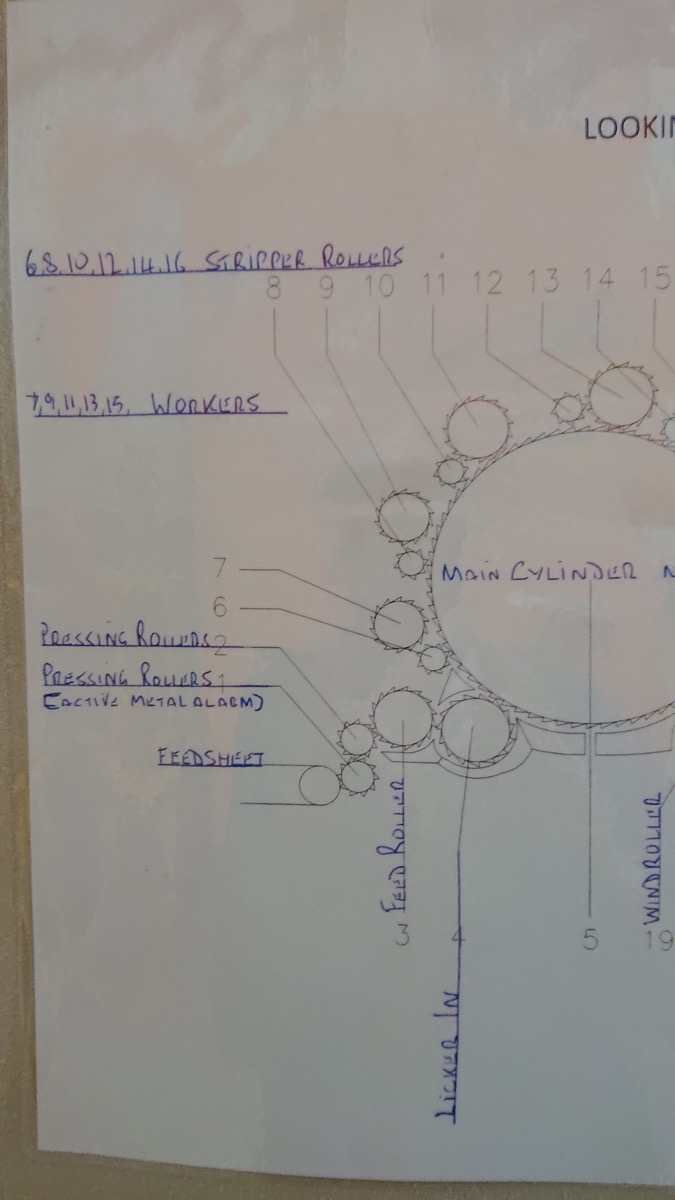 LOOKIN
6,8,10,12,14,16 STRIPPER ROLLERS
8 9 10 11 12 13 14 15
7,9,11,13,15, WORKERS
7
MAIN CYLINDER
6
PRESSING ROLLERS 2
PRESSING ROLLERS 1
(ACTIVE METAL ALARM)
FEEDSHEET
FEED ROLLER
WINDROLLER
3 4 5 19
LICKER IN